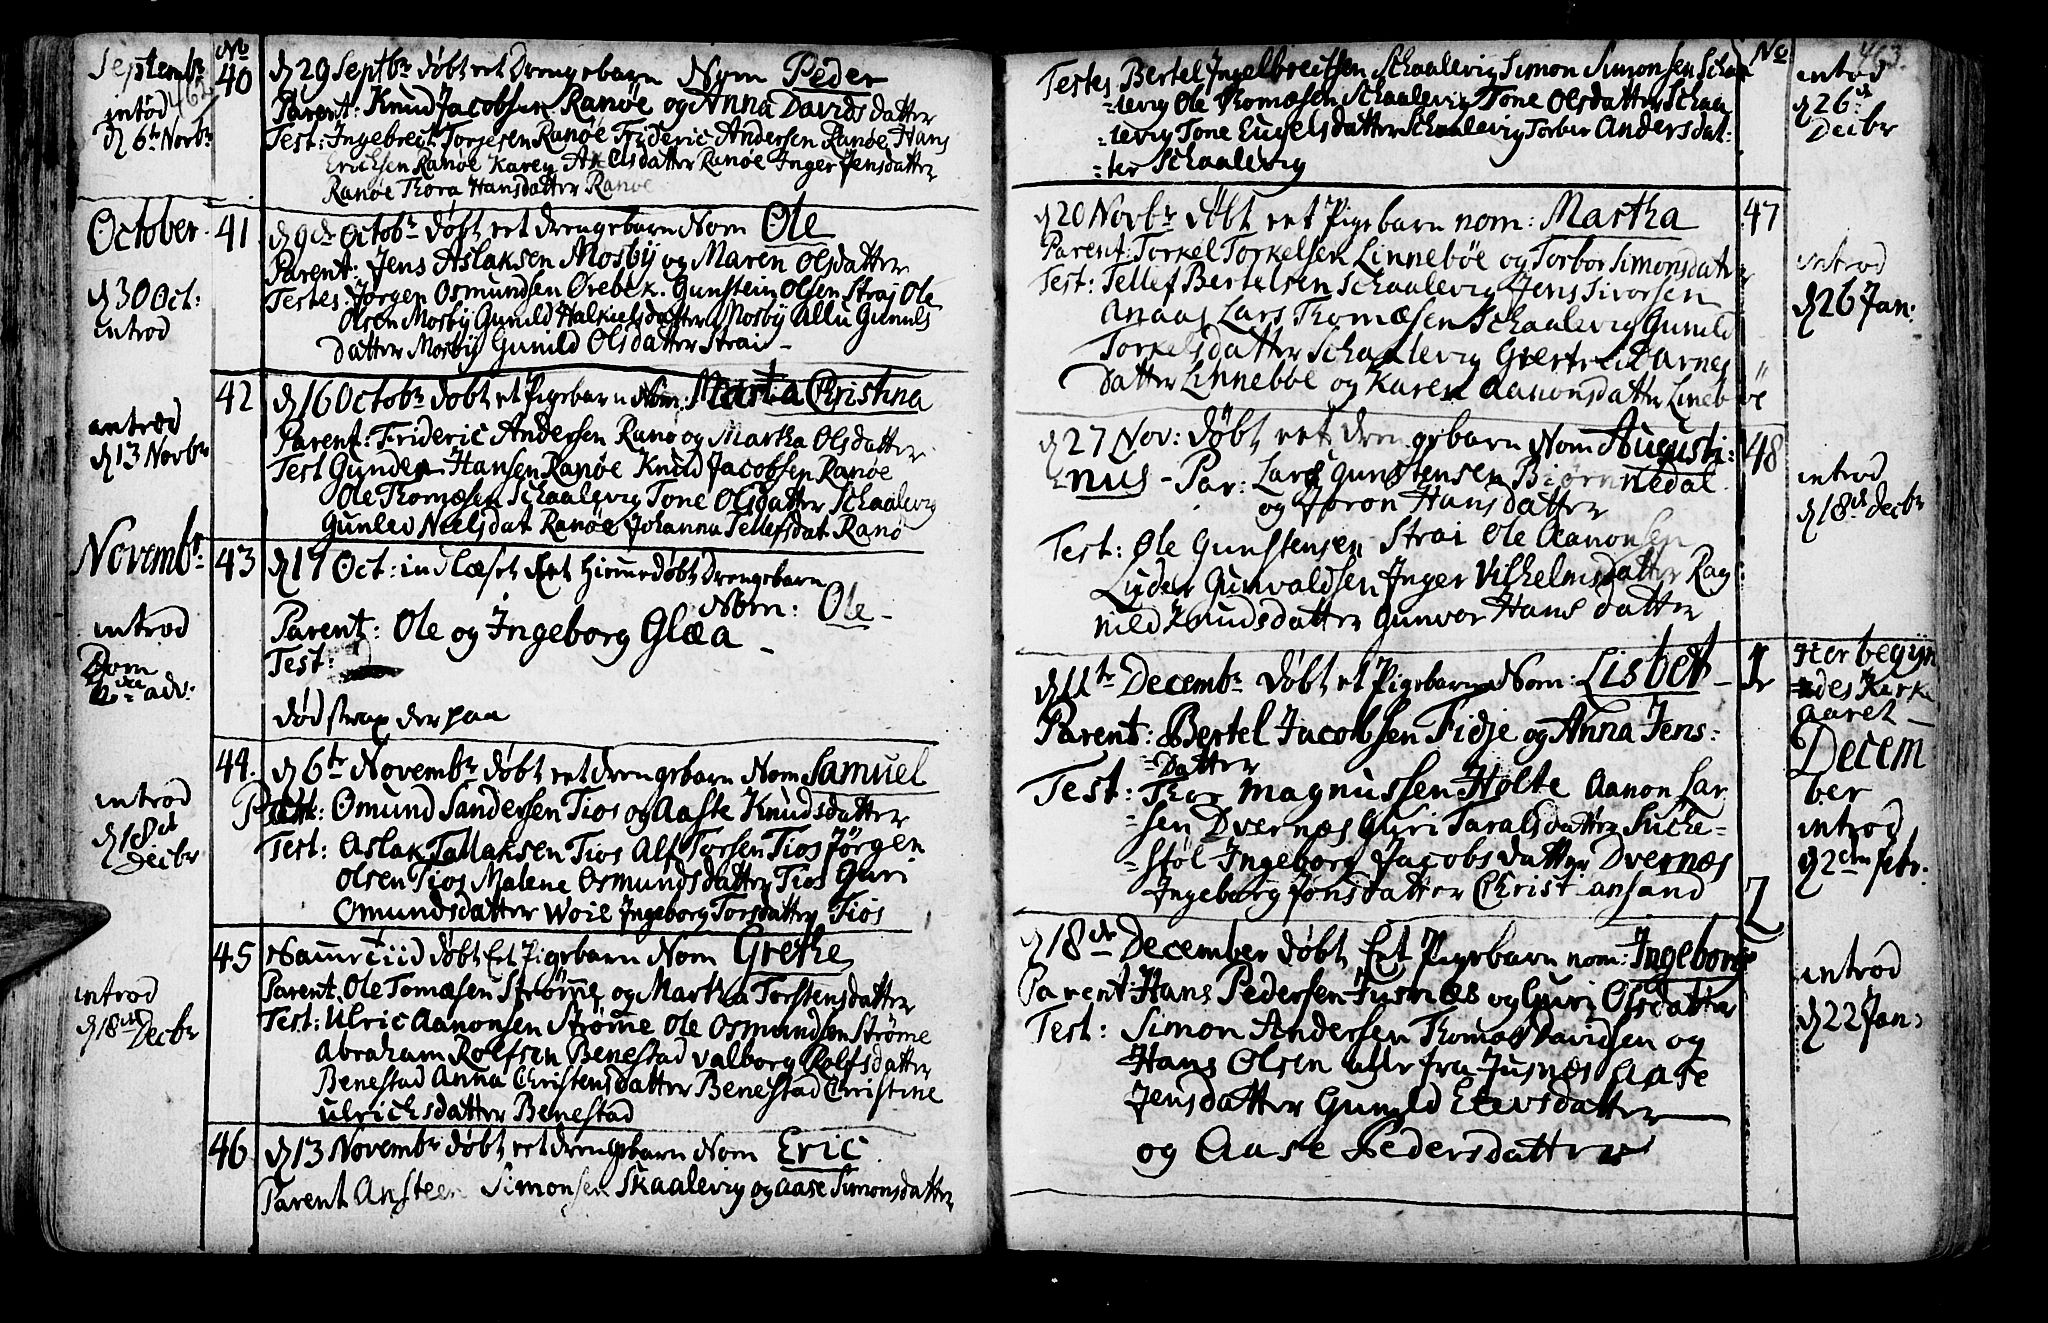 Septembr
462
intrd
d 6te Novbr
No
40
d 29 Septbr døbt eet Drengebarn Nom Peder
Parent: Knud Jacobsen Ranøe og Anna Davids datter
Test: Ingebregt Torgesen Ranøe Frideric Andersen Ranøe Hans
Erichsen Ranøe Karen Axelsdatter Ranøe Inger Jensdatter
Ranøe Thora Hansdatter Ranøe
October
d 30 Oct:
introd
41
d 9de Octobr døbt eet drengebarn Nom Ole
Parent: Jens Aslaksen Mosbÿ og Maren Olsdatter
Testes: Jørgen Osmundsen Ørebek. Gunstein Olsen Straj Ole
Olsen Mosbÿ Gunild Halkields datter Mosbÿ Gunilds
datter Mosbÿ Gunild Olsdatter Strai
introd
d 13 Novbr
42
d 16 Octobr døbt et Pigebarn Nom: Marta Christina
Parent: Frideric Andersen Ranø og Martha Olsdatter
Test Gunder Hansen Ranøe Knud Jacobsen Ranøe
Ole Thomæsen Schaalevig Tone Olsdatter Schaalevig
Gunlev Neelsdat Ranøe Johanna Tellefsdat Ranø
Novembr
introd
Dom
2den adv:
43
d 17 Oct: in Flæset Eet Hiemmedøbt Drengebarn
Nom: Ole
Parent: Ole og Ingeborg Glæa
Test:
død strax der paa
introd
d 18de
Decbr
44.
d 6te Novembr døbt eet drengebarn Nom Samuel
Part: Omund Sandersen Tios og Aaste Knudsdatter
Test: Aslak Tallaksen Tios Alf Torsen Tios Jørgen
Olsen Tios Malene Osmundsdatter Tios Guri
Omundsdatter Woie Ingeborg Torsdatter Tios
introd
d 18de Decbr
45
Samme tiid døbt Eet Pigebarn Nom Grethe
Parent. Ole Tomæsen Strømme og Martha Torstensdatter
Test: Ulric Aanonsen Strømme Ole Osmundsen Strømme
Abraham Rolfsen Benestad Valborg Rolfsdatter
Benestad Anna Christensdatter Benestad Christine
Ulrichsdatter Benestad
46
d 13 Novembr døbt eet drengebarn Nom Eric
Parent Ansteen Simonsen Skaalevig og Aase Simonsdatter
463.
No
Testes Bertel Ingelbreitsen Schaalevig Simon Simonsen Schaa
=levig Ole Thomæsen Schaalevig Tone Olsdatter Schaa
=levig Tone Eugelsdatter Schaalevig Torber Andersdat:
=ter Schaalevig
introd
d 26de
Decbr
d 20 Novbr døbt eet Pigebarn nom: Martha
47
Parent: Torkel Torkelsen Linnebøe og Torbor Simonsdatter
Test: Tellef Bertelsen Schaalevig Jens Sivorsen
Anaas Lars Thomæsen Schaalevig Gunild
Torkelsdatter Schaalevig Giertrud Arnes "
datter Linnebøe og Karen Aanonsdatter Linebøe
introd
d 26 Jan:
d 27 Nov: døbt eet drengebarn Nom Augusti:
48
nus - Par: Lars Gunstensen Biørnnedal
og Joron Hansdatter
Test: Ole Gunstensen Strai Ole Aanonsen
Lyder Gunvaldsen Inger Vilhelmsdatter Rag
nild Knudsdatter Gunvor Hans datter
introd
d 18de Decbr
d 11te Decembr døbt et Pigebarn Nom: Lisbet
1
Parent: Bertel Jacobsen Fidje og Anna Jens:
=Datter
Test: Thor Magnussen Holte Aanon Lar
=sen Dvernæs Guri Taralsdatter Suche=
=støl Ingeborg Jacobsdatter Dvernæs
Ingeborg Jonsdatter Christiansand
Her begÿn
des Kirke
aaret
Decem
ber
introd
d 2den febr.
2
d 18de December døbt Eet Pigebarn nom: Ingeborg
Parent: Hans Pedersen Jusnæs og Guri Olsdatter
Test: Simon Andersen Thomas Davidsen og
Hans Olsen alle fra Jusnæs Aase
Jensdatter Gunild Elevsdatter
og Aase Pedersdatter
introd
d 22 Jan: